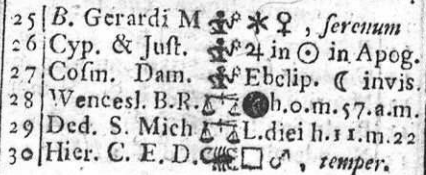 25 B. Gerardi M ♍ ✶ ♀, ſerenum
26 Cyp. & Juſt. ♍ ♃ in ☉ in Apog.
27 Coſm. Dam. ♍ Ebclip. ☾ invis.
28 Wencesl. B.R. ♎ ● h.0.m.57.a.m.
29 Ded. S. Mich ♎ L.diei h.11.m.22
30 Hier. C. E. D. ♏ □ ♂, temper.